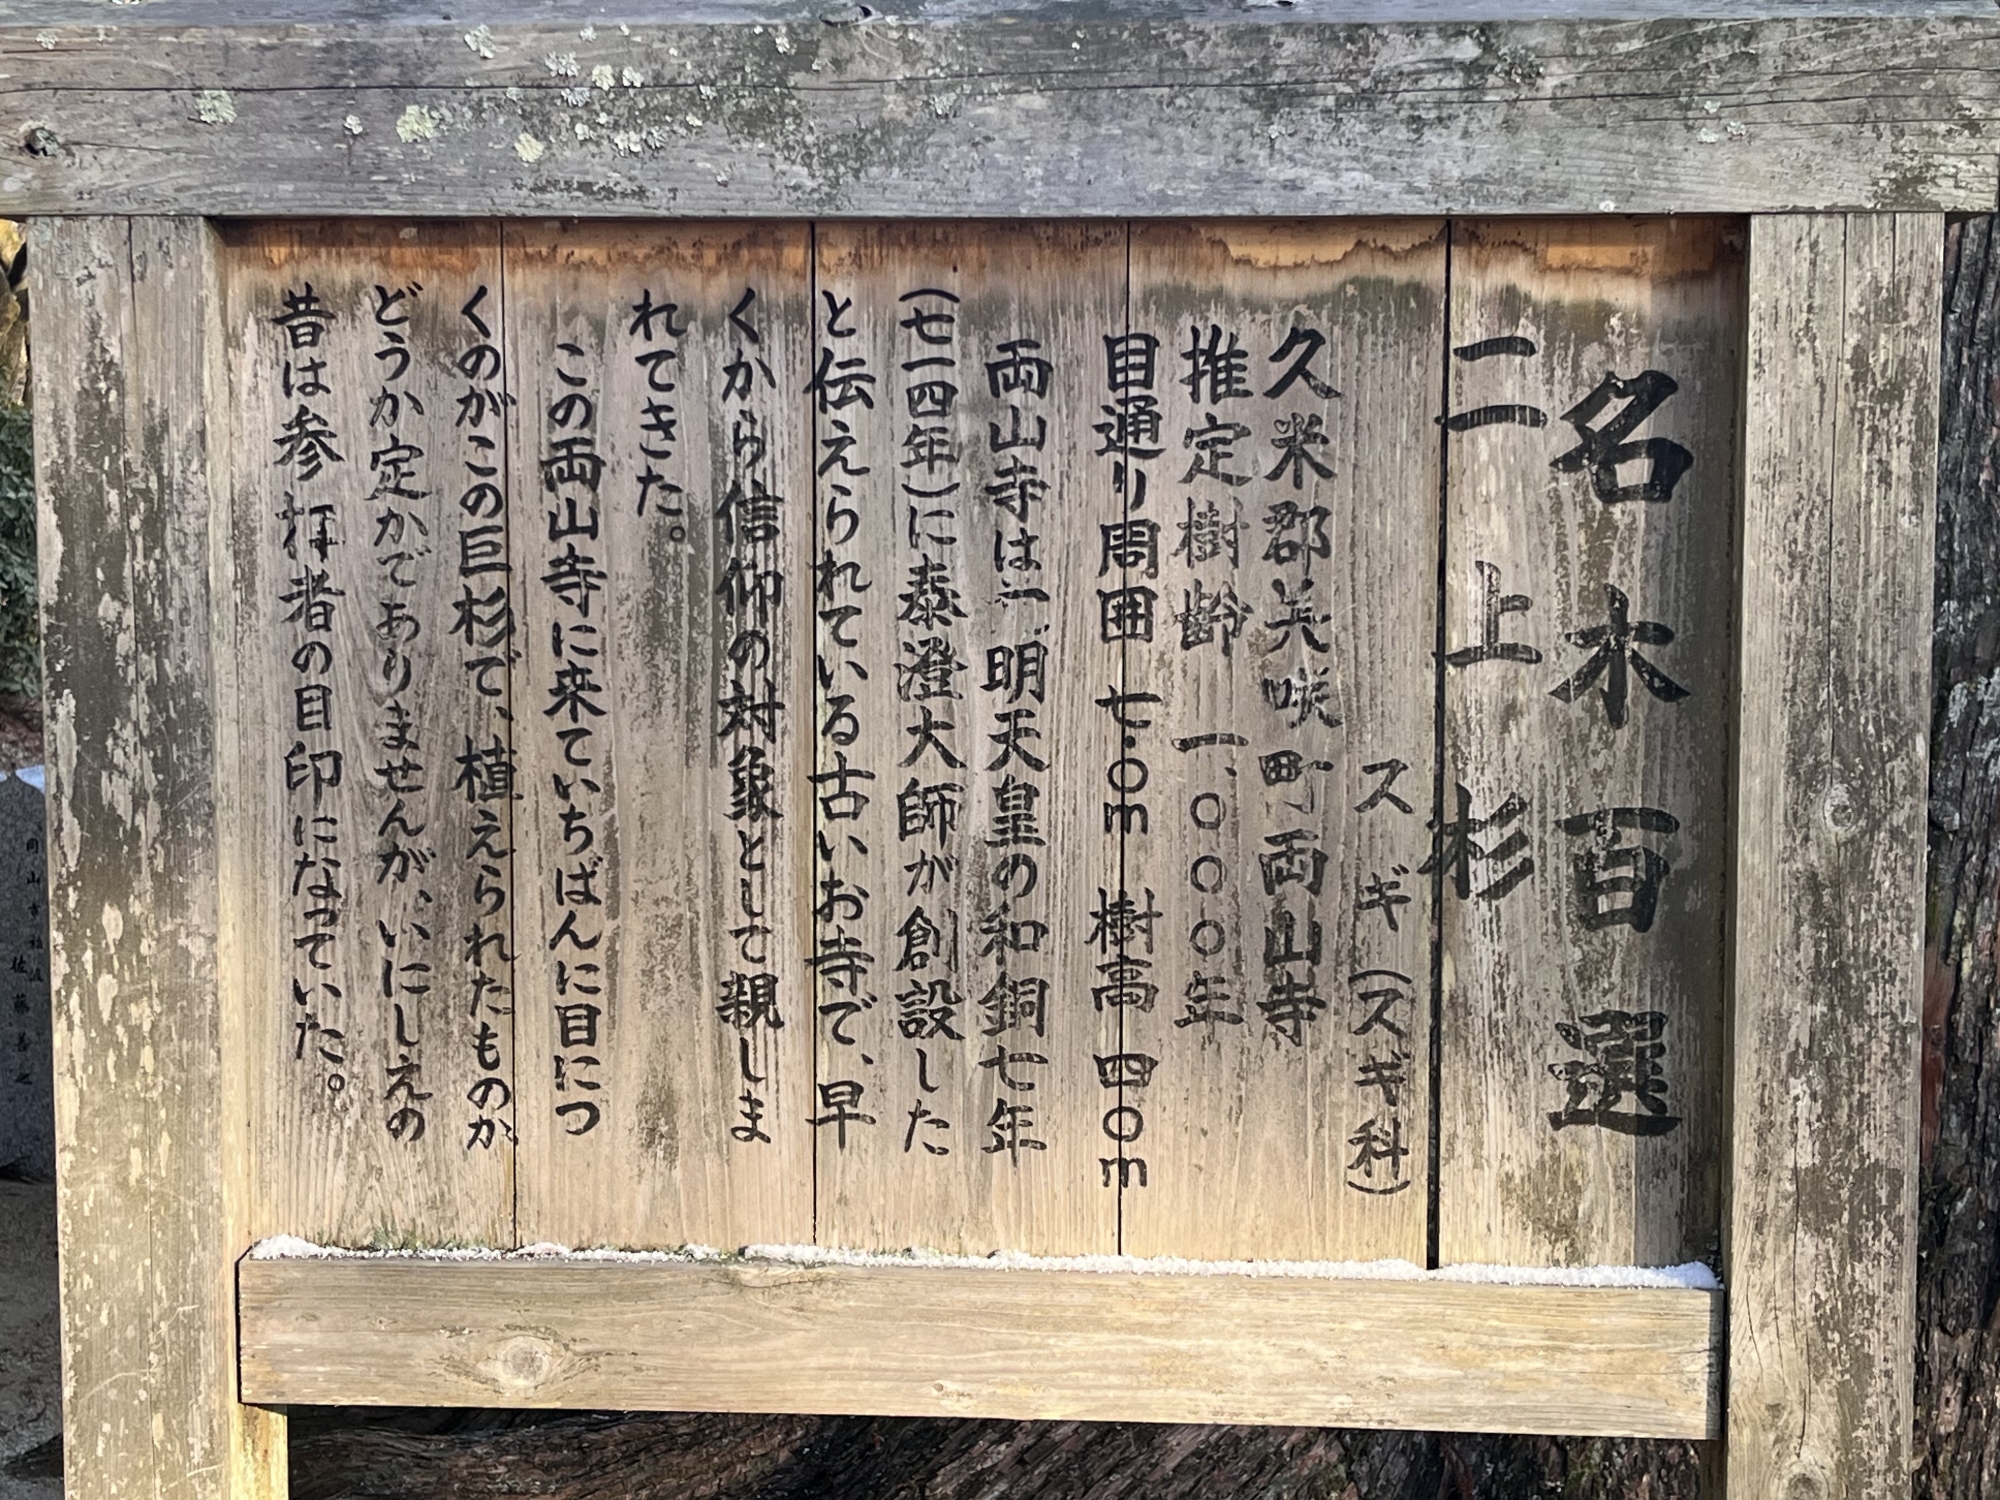 名木百選
二上杉
スギ（スギ科）
久米郡美咲町両山寺
推定樹齢　一、〇〇〇年
目通り周囲　七・〇m　樹高　四〇m
両山寺は　明天皇の和銅七年
（七一四年）に泰澄大師が創設した
と伝えられている古いお寺で、早
くから信仰の対象として親しま
れてきた。
この両山寺に来ていちばんに目につ
くのがこの巨杉で、植えられたものか
どうか定かでありませんが、いにしえの
昔は参拝者の目印になっていた。
佐藤善之